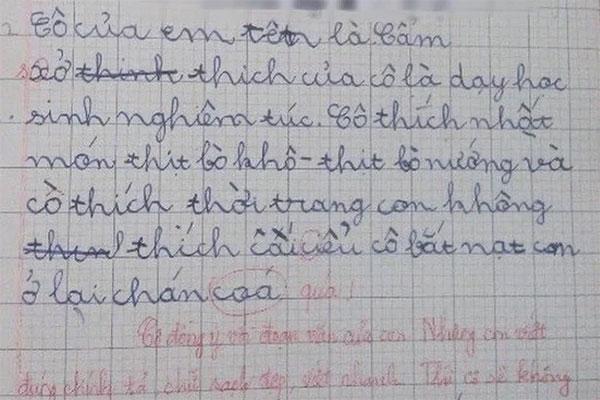 Cô của em tên là Cẩm
sở thinh thích của cô là dạy học
sinh nghiêm túc. Cô thích nhất
món thịt bò khô - thịt bò nướng và
cô thích thời trang con không
thích cái kiểu cô bắt nạt con
ở lại chán coá quá!
Cô đồng ý với đoạn văn của con. Nhưng con viết
đúng chính tả, chữ sạch đẹp, viết nhanh. Thì cô sẽ không